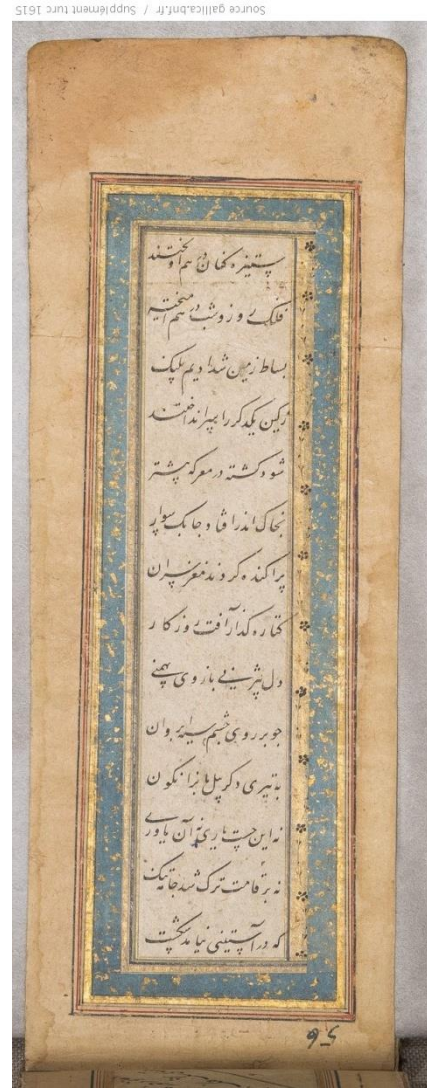 Source gallica.bnf.fr / Supplément turc 1615
ستیزه کنان در هم آویختند
فلک روز و شب در هم آمیخته
بساط زمین شد ادیم پلنگ
زکین یکدکر را سپر انداختند
شود کشته در معرکه پیشتر
بخاک اندر افتاد چابک سوار
پراکنده کردند مغز سران
کناره کذار آفت روزکار
دل شیر نی بازوی بهمنی
چو بر روی خشم سیه ابروان
به تیری دکر پیل را نکون
نه این جست یاری نه آن یاوری
نه بر قامت ترک شد جا تنک
که در آستینی نیامد
56